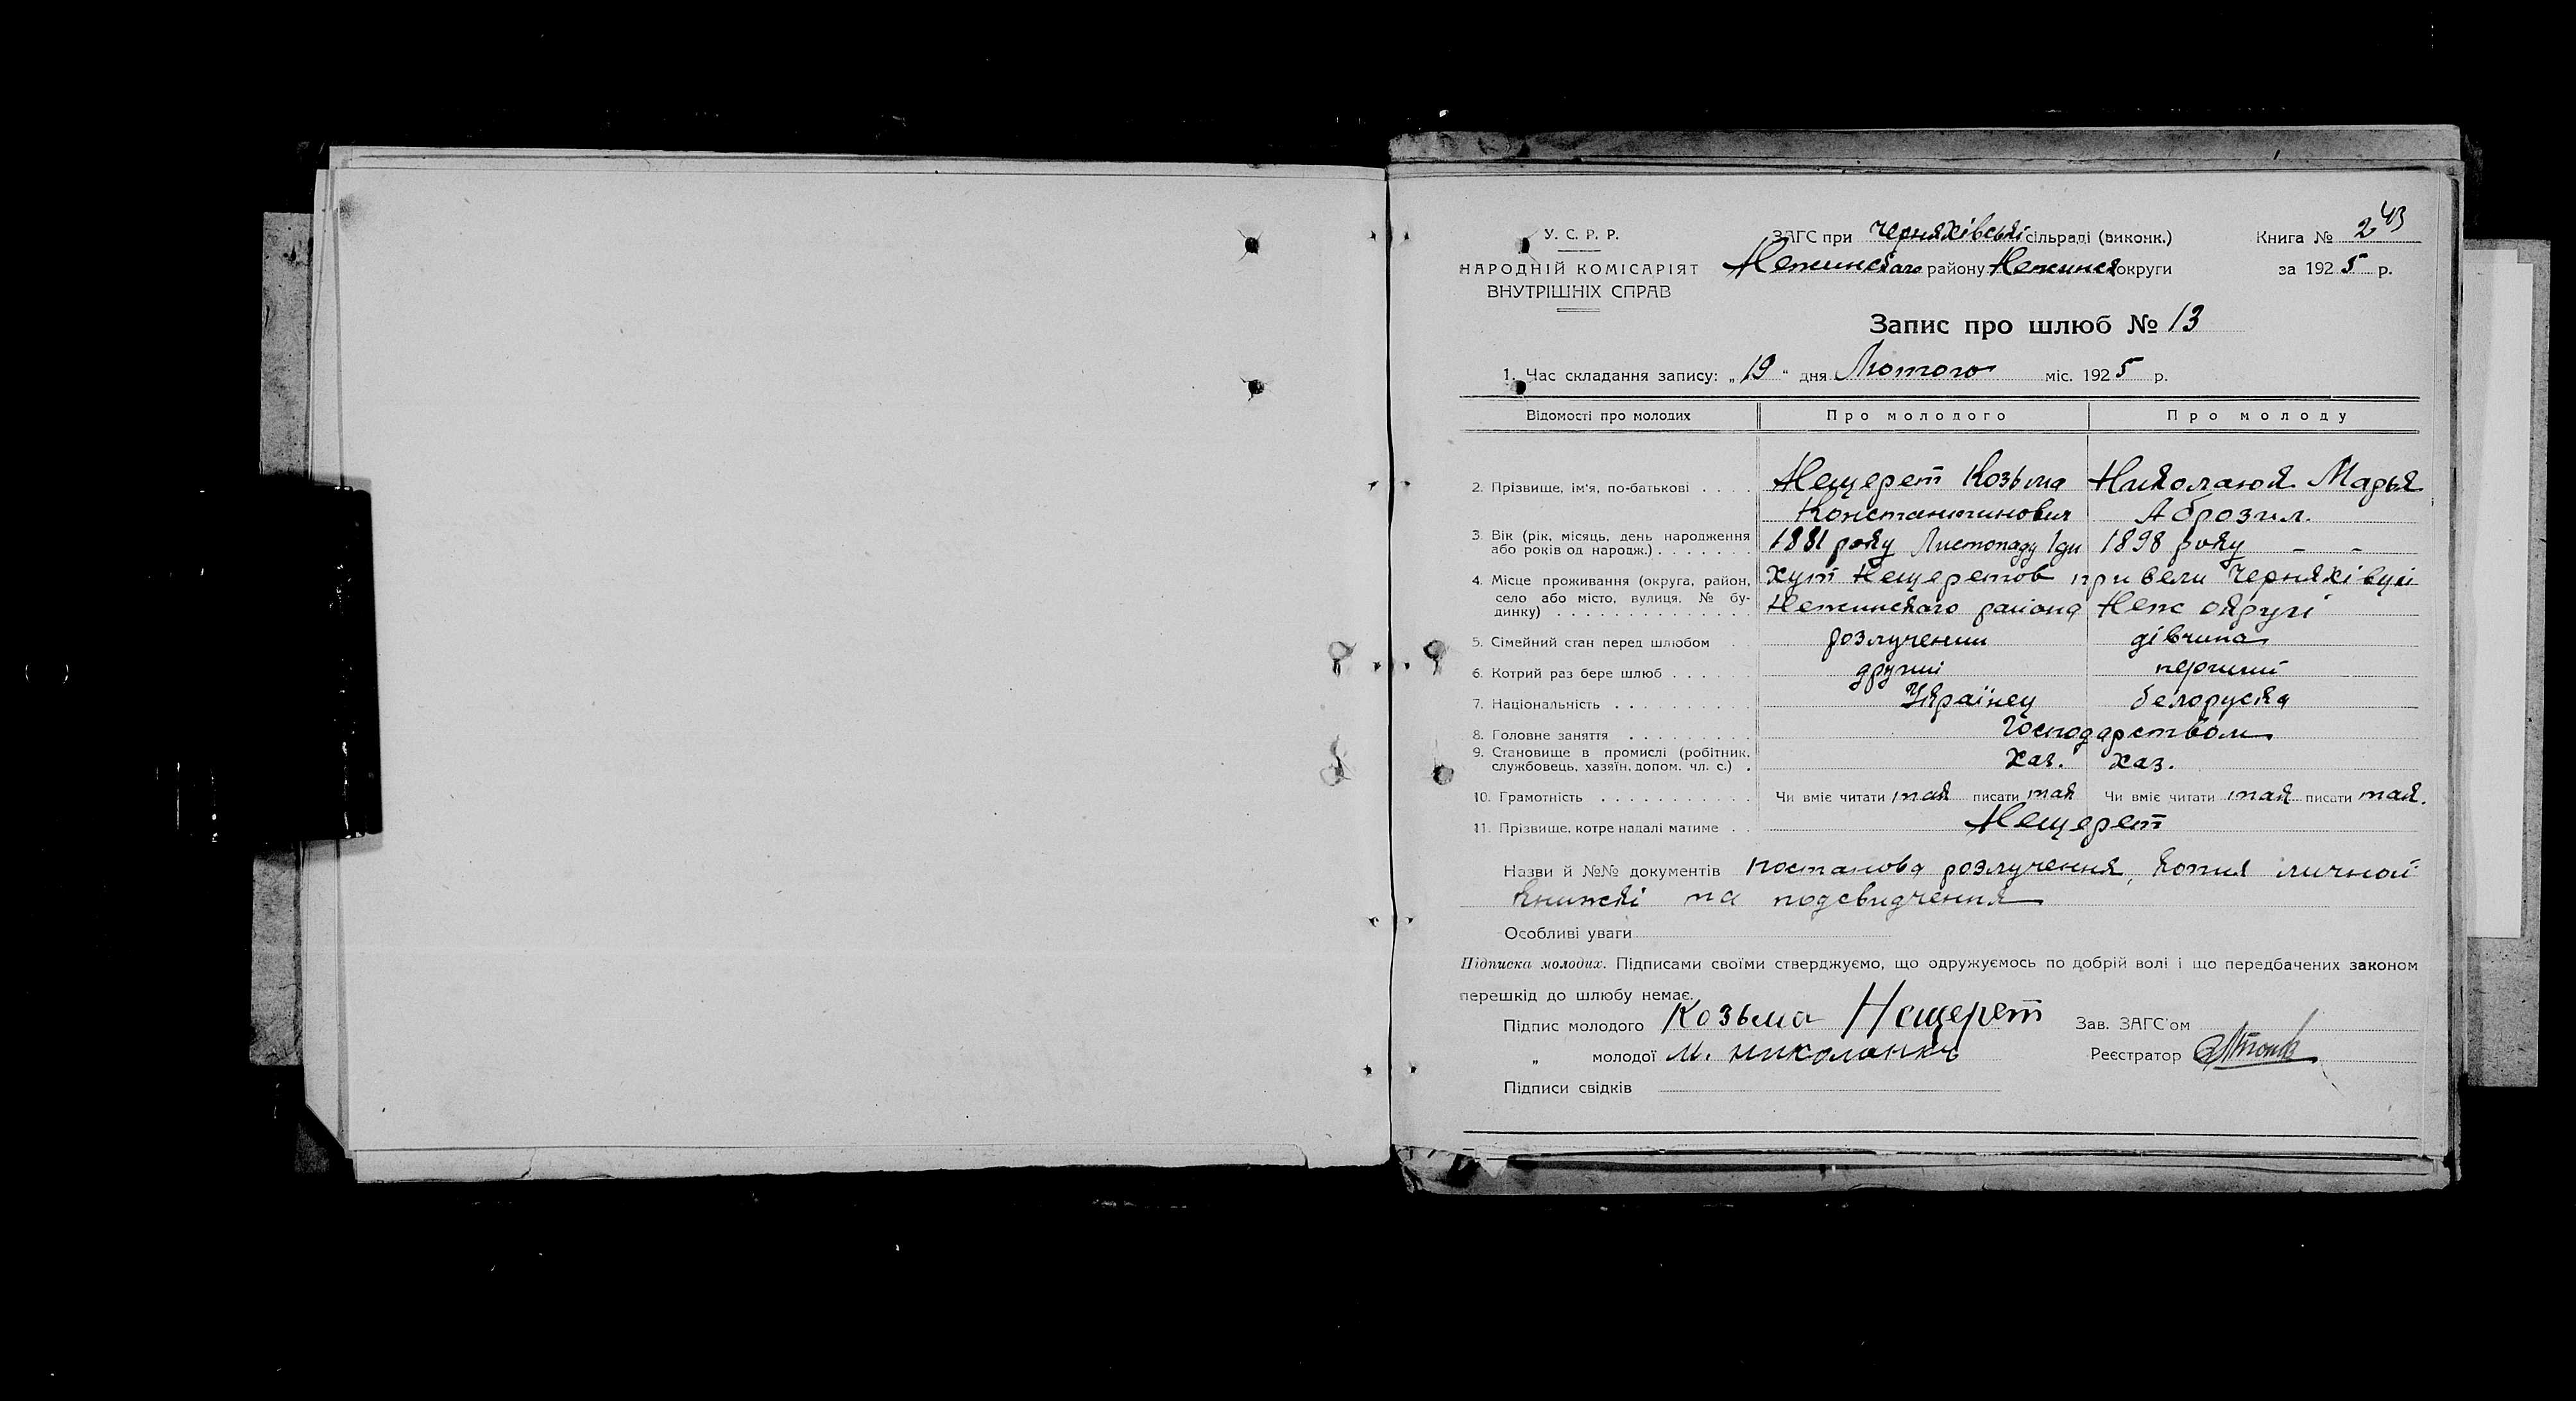 43
У. С. Р. Р. ЗАГС при Черняхівські сільраді (виконк.) Книга № 2
НАРОДНІЙ КОМІСАРІЯТ Нежинскаго району Нежинск округи за 1925 р.
ВНУТРІШНІХ СПРАВ
Запис про шлюб № 13
1. Час складання запису: „19“ дня Лютого міс. 1925 р.
Відомості про молодих Про молодого Про молоду
2. Прізвище, ім'я, по-батькові . . . . Нещерет Козьма Марья
Константинович
3. Вік (рік, місяць, день народження
або років од народж.) . . . . . . . 1881 року Листопаду 1дн 1898 року – –
4. Місце проживання (округа, район, хут Нещеретов при вели Черняхівці
село або місто, вулиця, № бу-
динку) . . . . . . . . . . . . . . Нежинскаго раиона Неж округі
5. Сімейний стан перед шлюбом . розлучении дівчина
6. Котрий раз бере шлюб . . . . . . другиі перший
7. Національність . . . . . . . . . . Українец белоруска
8. Головне заняття . . . . . . . . . Господарством
9. Становище в промислі (робітник,
службовець, хазяїн, допом. чл. с.) . хаз. хаз.
10. Грамотність . . . . . . . . . . . Чи вміє читати так писати так Чи вміє читати так писати так.
11. Прізвище, котре надалі матиме . . Нещерет
Назви й №№ документів постанова розлучення, копия личной
книжкі та подсвидчення
Особливі уваги
Підписка молодих. Підписами своїми стверджуємо, що одружуємось по добрій волі і що передбачених законом
перешкід до шлюбу немає.
Підпис молодого Козьма Нещерет Зав. ЗАГС'ом
„ молодої М. Реєстратор
Підписи свідків